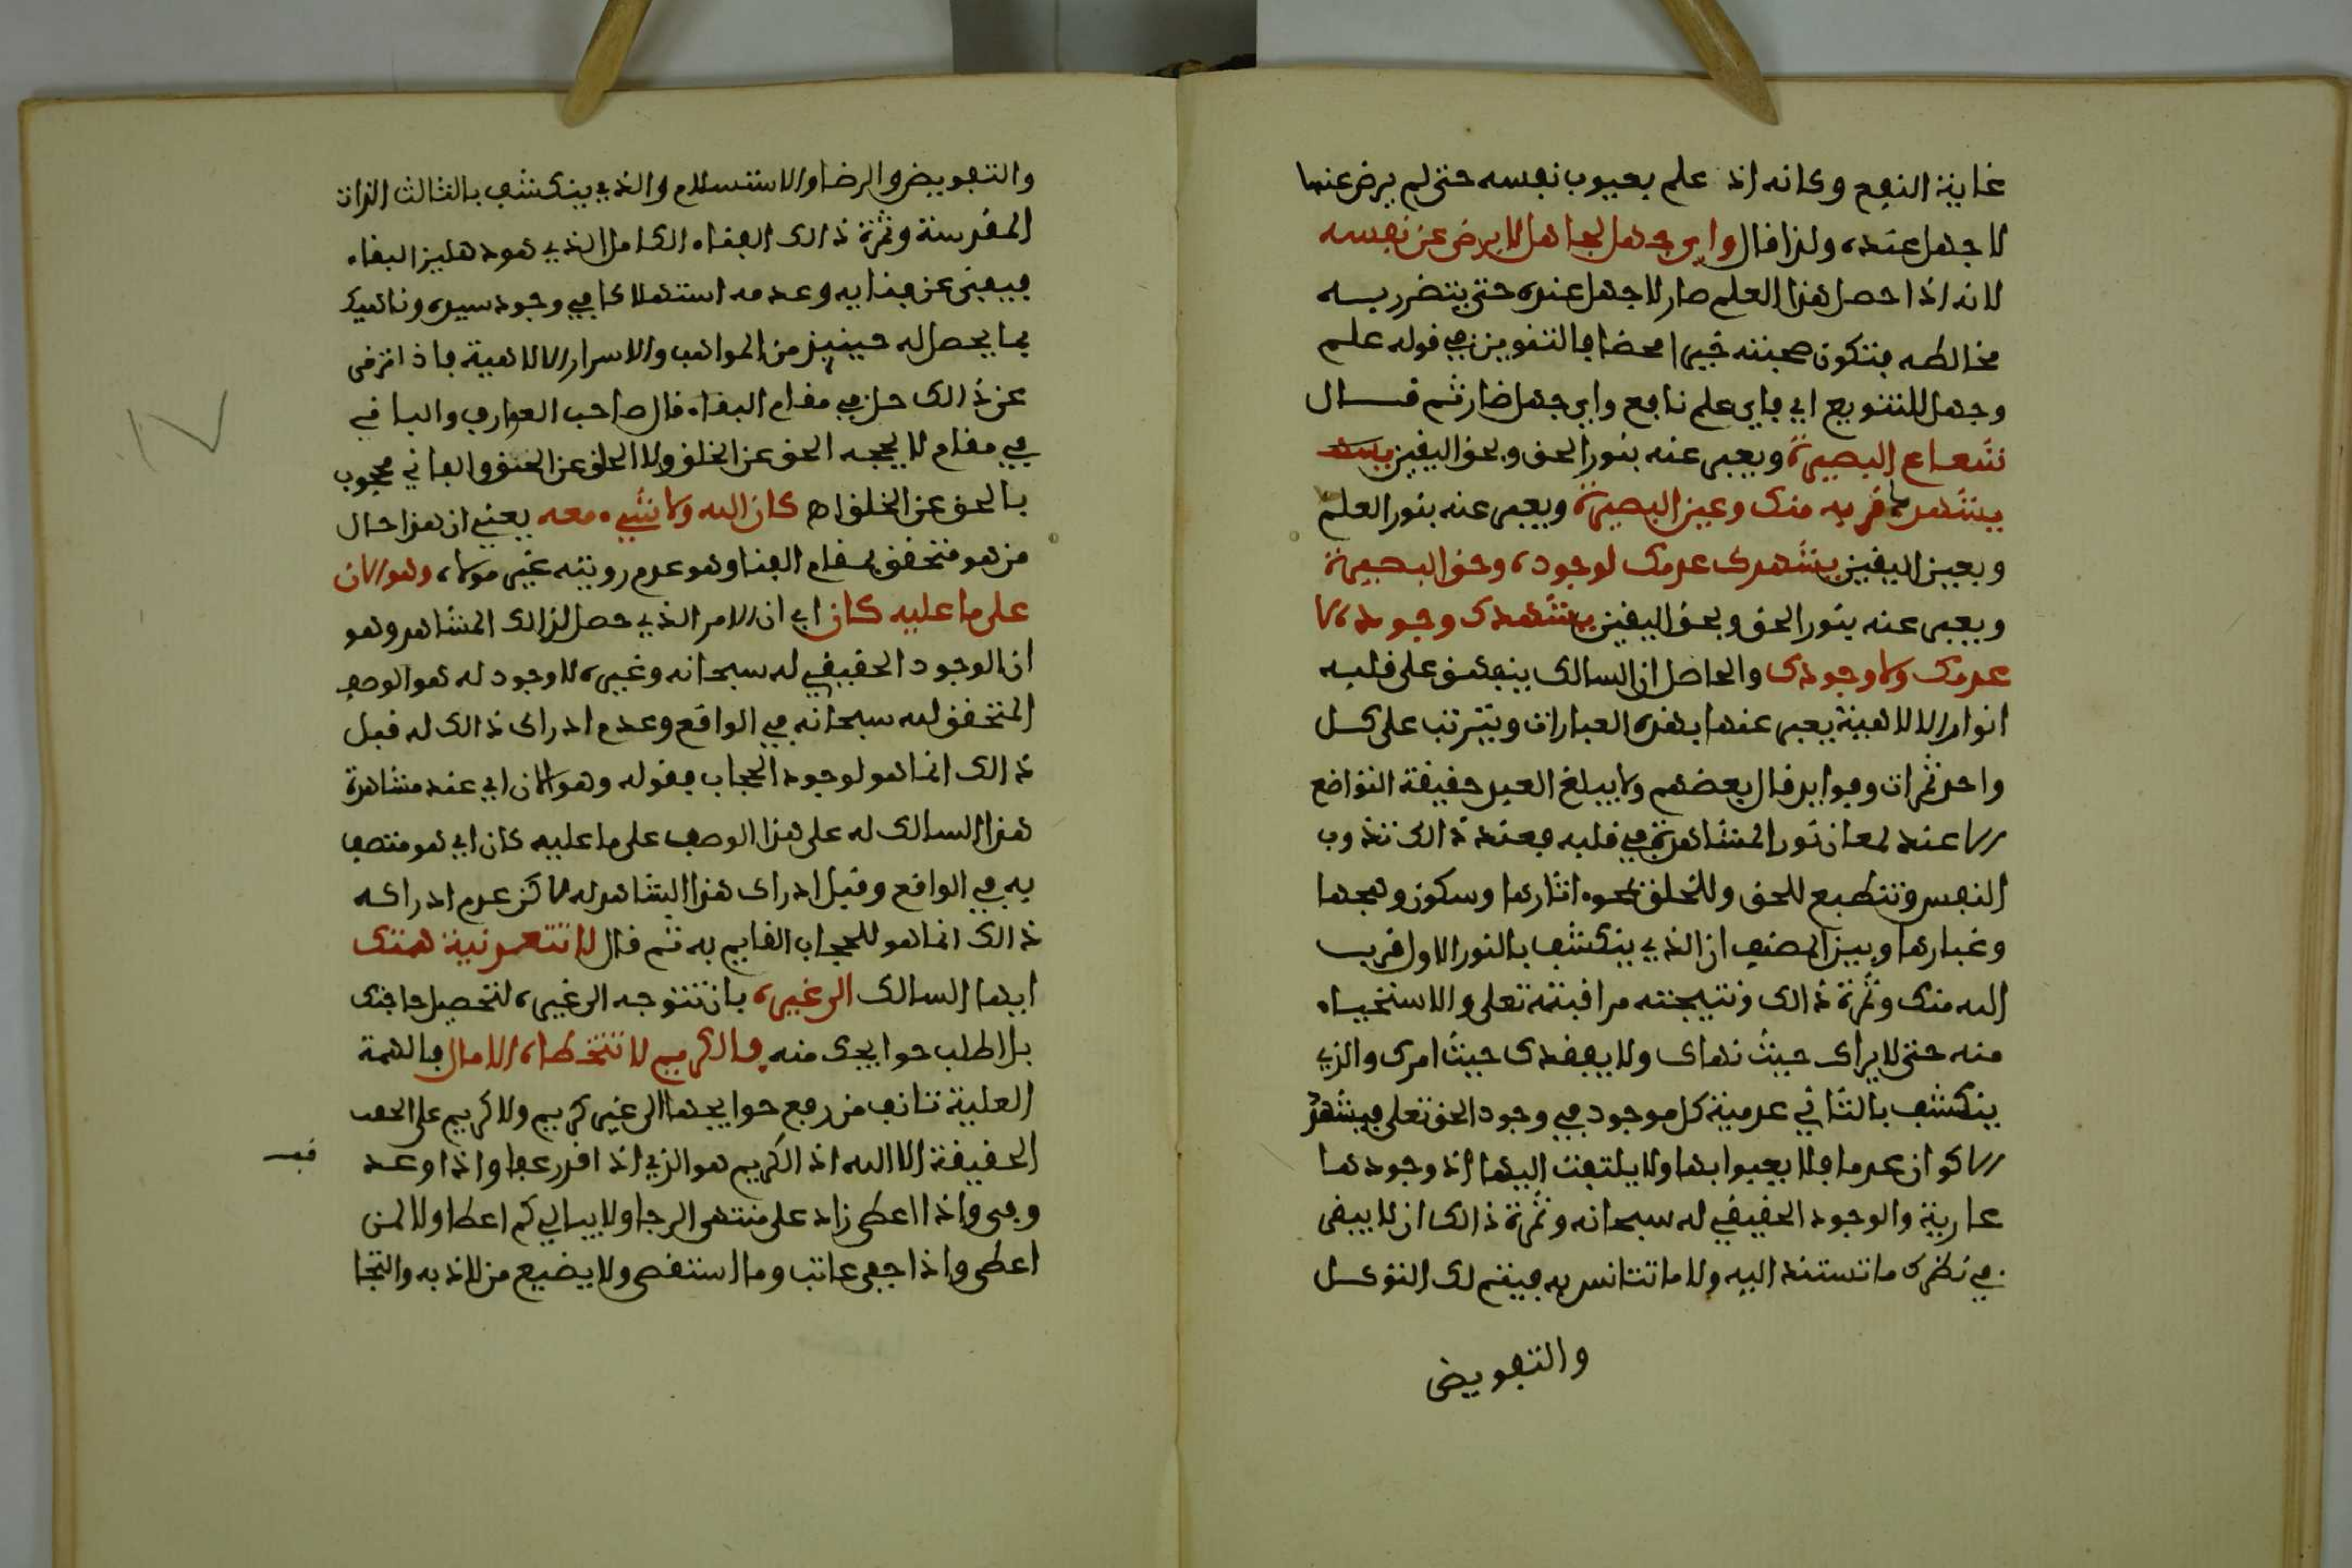 غاية النفع وكانه اذ علم بعيوب نفسه حتى لم يرض عنها
لا جهل عنده ولذا قال واي جهل لجاهل لا يرضى عن نفسه
لانه اذا حصل هذا العلم صار لا جهل عنده حتى يتضرر بسه
مخالطه فتكون صحبته خيرا محضا فالتنوين في قوله علم
وجهل للتنويع اي فاي علم نافع واي جهل ضار ثم قال
شعاع البصيرة ويعبر عنه بنور الحق وبحق اليقين
يشهدك قربه منك وعين البصيرة ويعبر عنه بنور العلم
وبعين اليقين يشهدك عدمك لوجوده وحق البصيرة
ويعبر عنه بنور الحق وبحق اليقين يشهدك وجوده لا
عدمك ولا وجودك والحاصل ان السالك ينفهق على قلبه
انوار الالاهية يعبر عنها بهذه العبارات ويترتب على كل
واحد ثمرات وفوايد قال بعضهم ولا يبلغ العبد حقيقة التواضع
الا عند لمعان نور المشاهدة في قلبه فعند ذالك تذوب
النفس وتنطبع للحق وللخلق بمحو ءاثارها وسكون وهجها
وغبارها وبين المصنف ان الذي ينكشف بالنور الاول قرب
الله منك وثمرة ذالك ونتيجته مراقبته تعلى والاستحياء
منه حتى لا يراك حيث نهاك ولا يفقدك حيث امرك والذي
ينكشف بالثاني عدمية كل موجود في وجود الحق تعلى فيشهد
الاكوان عدما فلا يعبوا بها ولا يلتفت اليها اذ وجودها
عارية والوجود الحقيقي له سبحانه وثمرة ذالك ان لا يبقى
في نظرك ما تستند اليه ولا ما تتانس به فيتم لك التوكل
والتفويض
والتفويض والرضا والاستسلام والذي ينكشف بالثالث الذات
المقدسة وثمرة ذالك الفناء الكامل الذي هو دهليز البقاء
فيفنى عن فنايه وعدمه استهلاكا في وجود سيده وناهيك
بما يحصل له حينيذ من المواهب والاسرار الالاهية فاذا ترقى
عن ذالك حل في مقام البقاء قال صاحب العوارف والباقي
في مقام لا يحجبه الحق عن الخلق ولا الخلق عن الحق والفاني محجوب
بالحق عن الخلق اه كان الله ولا شيء معه يعني ان هذا حال
من هو متحقق بمقام الفنا وهو عدم رويته غير مولاه وهو الان
على ما عليه كان اي ان الامر الذي حصل لذالك المشاهد وهو
ان الوجود الحقيقي له سبحانه وغيره لا وجود له هو الوصف
المتحقق لله سبحانه في الواقع وعدم ادراك ذالك له قبل
ذالك انما هو لوجود الحجاب فقوله وهو الان اي عند مشاهدة
هذا السالك له على هذا الوصف على ما عليه كان اي هو متصف
به في الواقع وقبل ادراك هذا الشاهد له لاكن عدم ادراكه
ذالك انما هو للحجاب القايم به ثم قال لا تتعد نية همتك
ايها السالك الى غيره بان تتوجه الى غيره لتحصيل حاجتك
بل اطلب حوايجك منه فالكريم لا تتخطاه الامال فالهمة
العلية تانف من رفع حوايجها الى غير كريم ولا كريم على
الحقيقة الا الله اذ الكريم هو الذي اذا قدر عفا واذا وعد
وفى واذا اعطى زاد على منتهى الرجا ولا يبالي كم اعطا ولا لمن
اعطى واذا جفي عاتب وما استقصى ولا يضيع من لاذ به والتجا